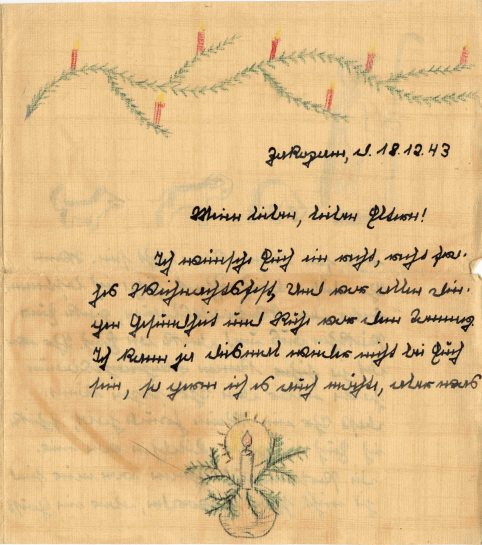 Zakopane, d. 18.12.43
Meine lieben, lieben Eltern!
Ich wünsche Euch ein recht, recht fro-
hes Weihnachtsfest, Und vor allen Din-
gen Gesundheit und Ruhe vor dem Tommy.
Ich kann ja diesmal wieder nicht bei Euch
sein, so gern ich es auch möchte, aber was